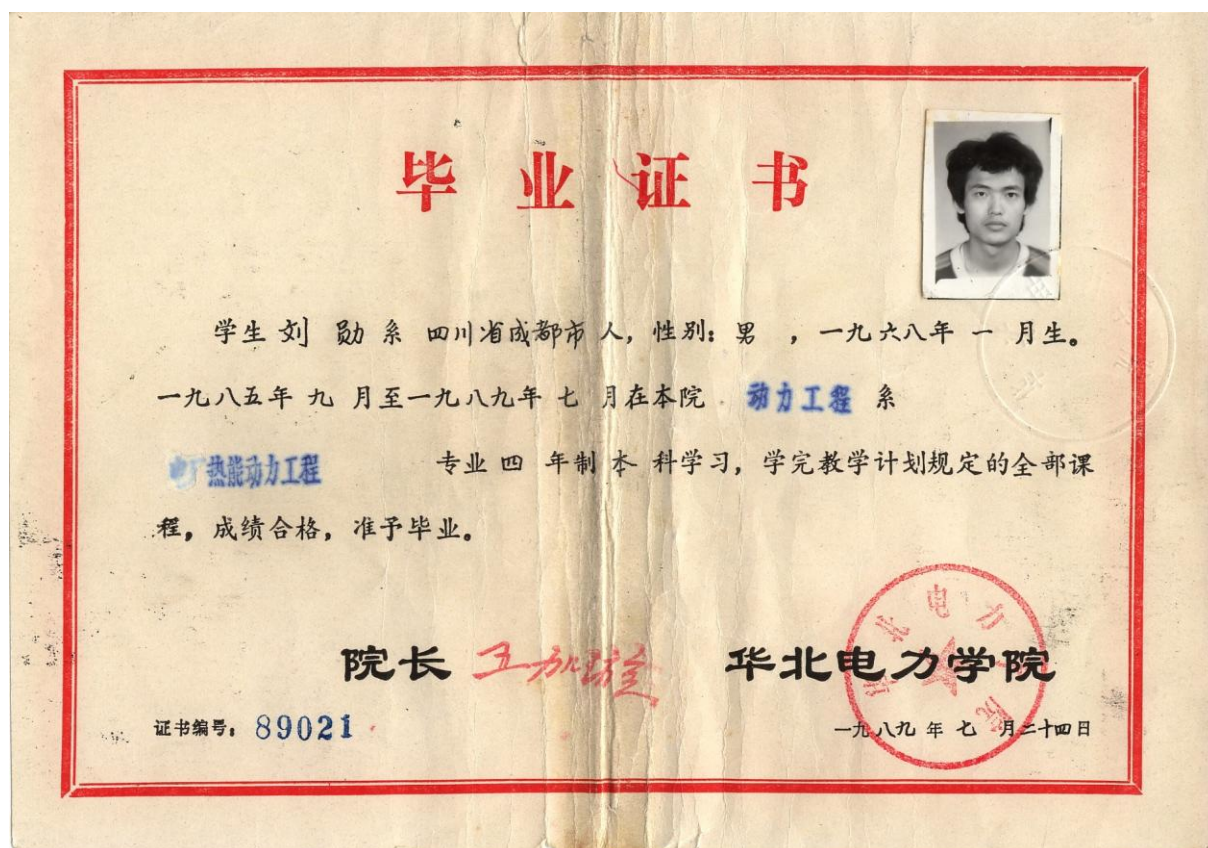 毕业证书
学生 刘 勋 系 四川省成都市 人，性别：男 ，一九六八年 一 月生。
一九八五年 九 月至一九八九年 七 月在本院 动力工程 系
电厂热能动力工程 专业 四 年制 本 科学习，学完教学计划规定的全部课
程，成绩合格，准予毕业。
院长 华北电力学院
华北电力学院
证书编号：89021 一九八九 年 七 月二十四日